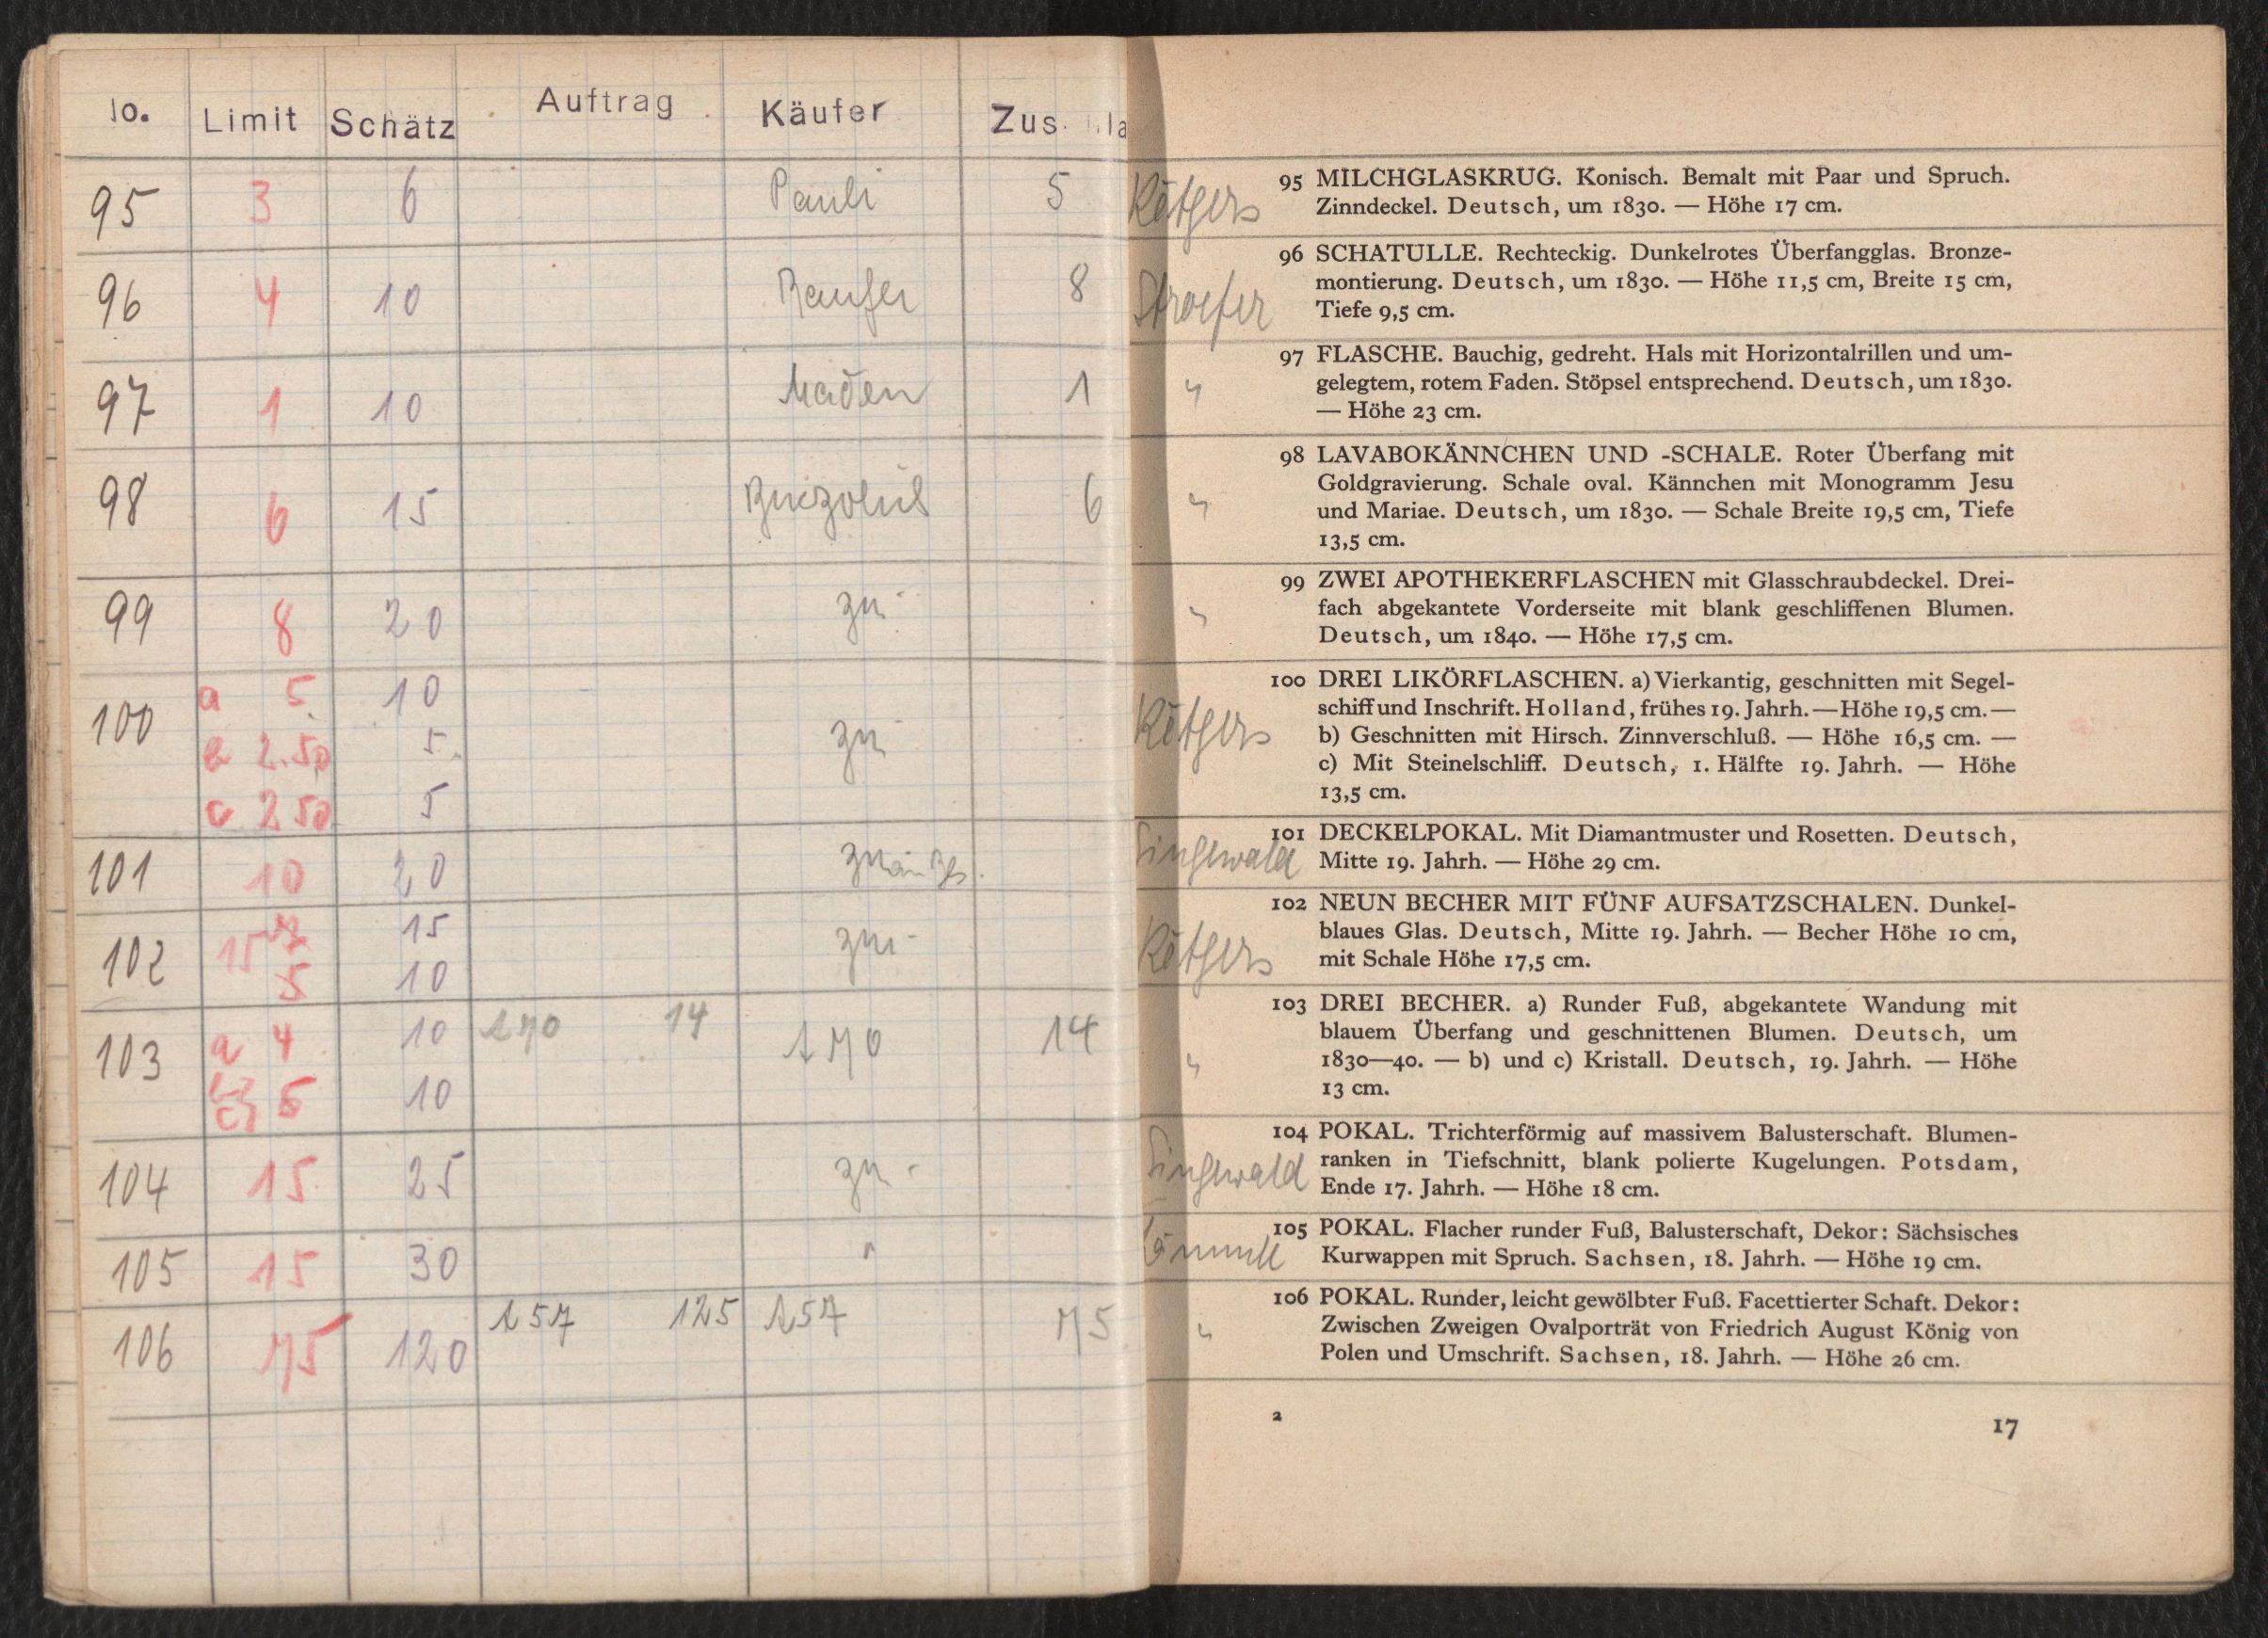 No. Limit Schätz Auftrag Käufer Zus
95 3 6 Pauli 5
96 4 10 8
97 1 10 1
98 6 15 6
99 8 20 zu -
100 a 5 10
b 2.50 5 zu -
c 2 50 5
101 10 20 zu
102 15 15 zu -
5 10
103 a 4 10 170 14 170 14
b) c) 5 10
104 15 25 zu -
105 15 30 "
106 75 120 157 125 157 75
Rötgers 95 MILCHGLASKRUG. Konisch. Bemalt mit Paar und Spruch.
Zinndeckel. Deutsch, um 1830. — Höhe 17 cm.
96 SCHATULLE. Rechteckig. Dunkelrotes Überfangglas. Bronze-
Stroefer montierung. Deutsch, um 1830. — Höhe 11,5 cm, Breite 15 cm,
Tiefe 9,5 cm.
97 FLASCHE. Bauchig, gedreht. Hals mit Horizontalrillen und um-
" gelegtem, rotem Faden. Stöpsel entsprechend. Deutsch, um 1830.
— Höhe 23 cm.
98 LAVABOKÄNNCHEN UND -SCHALE. Roter Überfang mit
Goldgravierung. Schale oval. Kännchen mit Monogramm Jesu
" und Mariae. Deutsch, um 1830. — Schale Breite 19,5 cm, Tiefe
13,5 cm.
99 ZWEI APOTHEKERFLASCHEN mit Glasschraubdeckel. Drei-
" fach abgekantete Vorderseite mit blank geschliffenen Blumen.
Deutsch, um 1840. — Höhe 17,5 cm.
100 DREI LIKÖRFLASCHEN. a) Vierkantig, geschnitten mit Segel-
schiff und Inschrift. Holland, frühes 19. Jahrh. — Höhe 19,5 cm. —
Rötgers b) Geschnitten mit Hirsch. Zinnverschluß. — Höhe 16,5 cm. —
c) Mit Steinelschliff. Deutsch, 1. Hälfte 19. Jahrh. — Höhe
13,5 cm.
101 DECKELPOKAL. Mit Diamantmuster und Rosetten. Deutsch,
Singewald Mitte 19. Jahrh. — Höhe 29 cm.
102 NEUN BECHER MIT FÜNF AUFSATZSCHALEN. Dunkel-
blaues Glas. Deutsch, Mitte 19. Jahrh. — Becher Höhe 10 cm,
Rötgers mit Schale Höhe 17,5 cm.
103 DREI BECHER. a) Runder Fuß, abgekantete Wandung mit
blauem Überfang und geschnittenen Blumen. Deutsch, um
" 1830—40. — b) und c) Kristall. Deutsch, 19. Jahrh. — Höhe
13 cm.
104 POKAL. Trichterförmig auf massivem Balusterschaft. Blumen-
Singewald ranken in Tiefschnitt, blank polierte Kugelungen. Potsdam,
Ende 17. Jahrh. — Höhe 18 cm.
105 POKAL. Flacher runder Fuß, Balusterschaft, Dekor: Sächsisches
Kurwappen mit Spruch. Sachsen, 18. Jahrh. — Höhe 19 cm.
106 POKAL. Runder, leicht gewölbter Fuß. Facettierter Schaft. Dekor:
" Zwischen Zweigen Ovalporträt von Friedrich August König von
Polen und Umschrift. Sachsen, 18. Jahrh. — Höhe 26 cm.
2 17